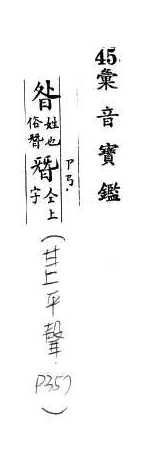 45.彙音寶鑑
昝姓也俗 仝上字
(甘上平聲 P357)